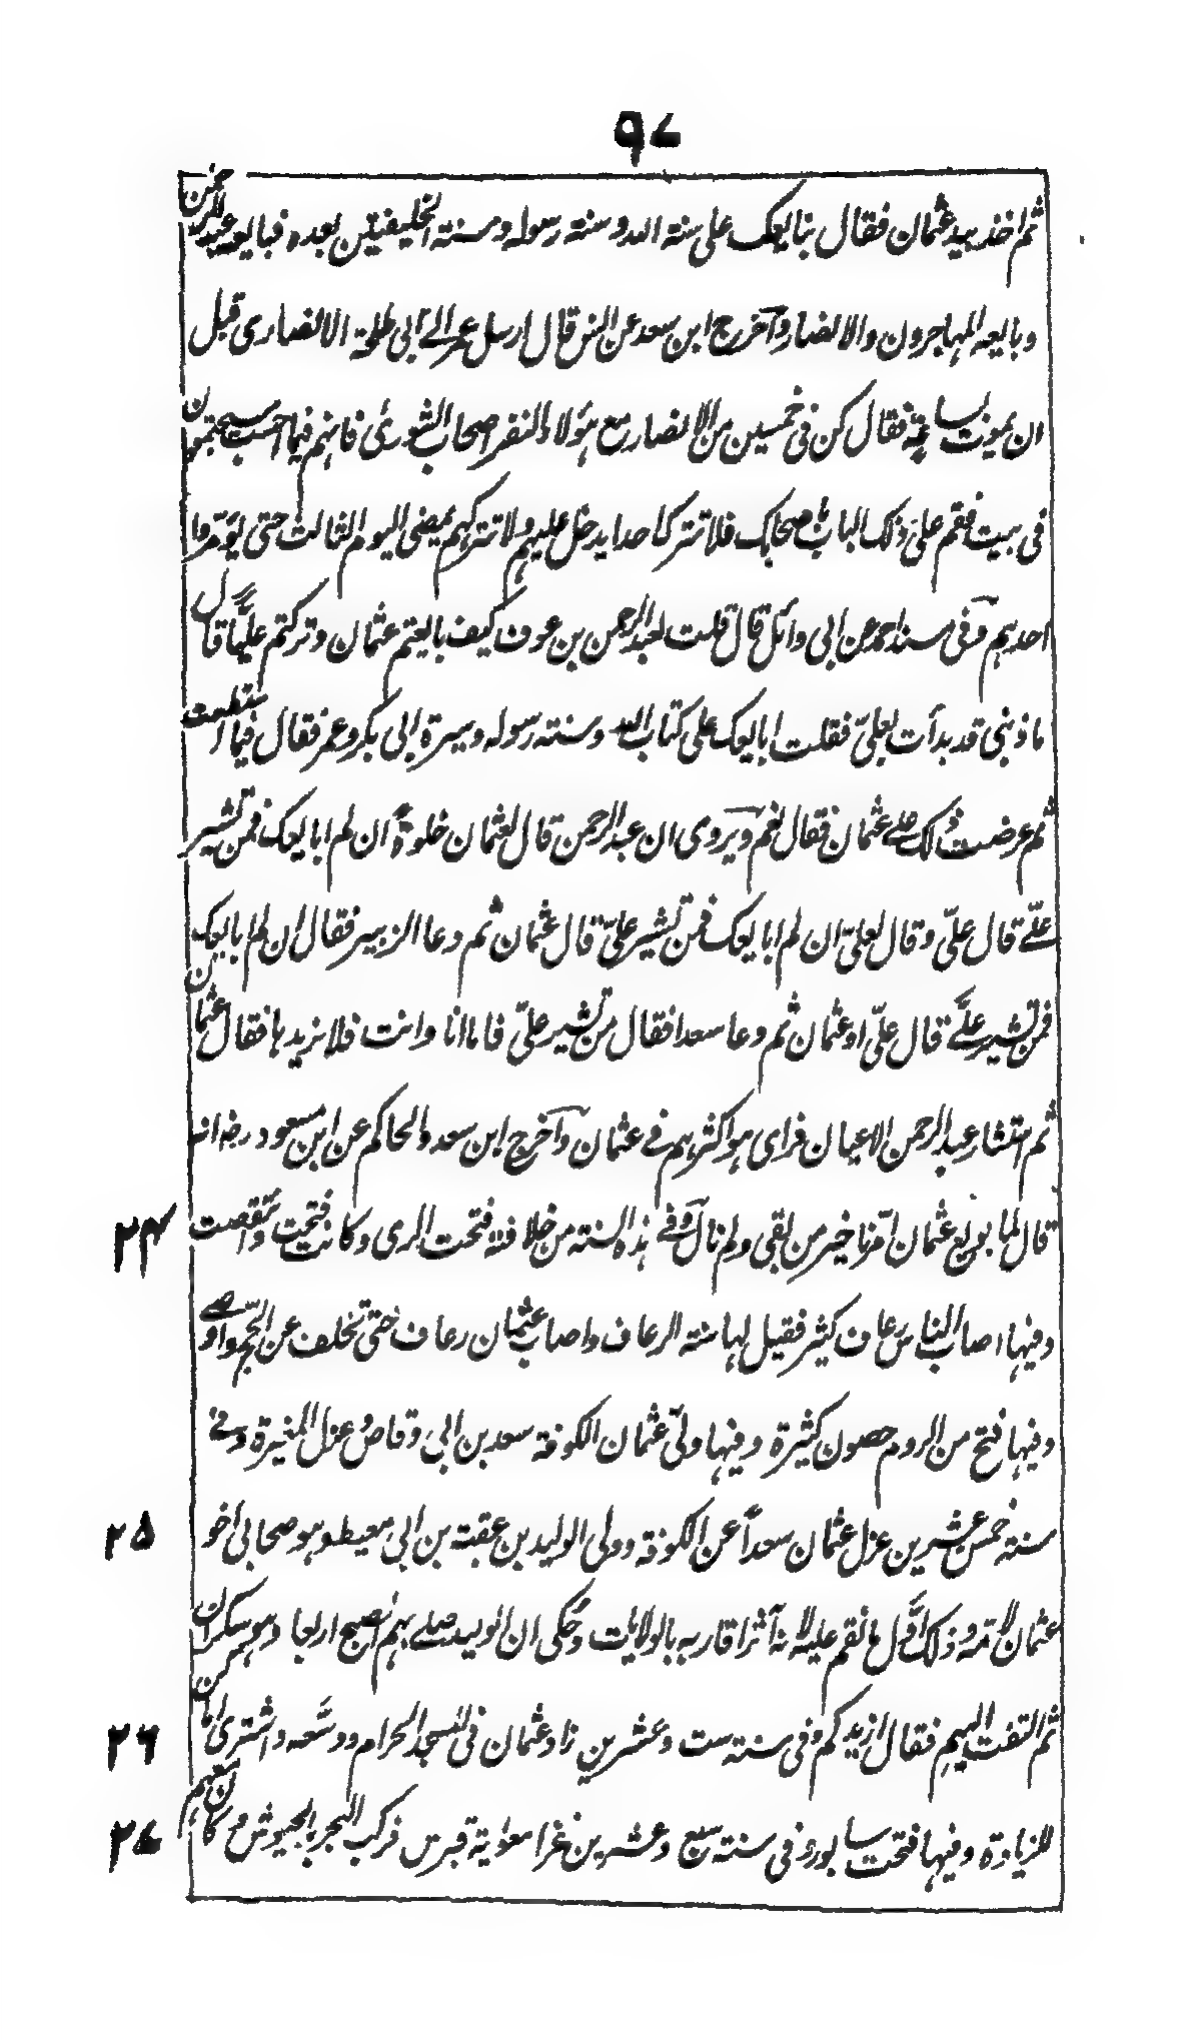 ٩٧
ثم اخذ بيد عثمان فقال نبايعك على سنة الله وسنة رسوله وسنة الخليفتين بعده فبايعه عبد الرحمن
وبايعه المهاجرون والانصار وآخرج ابن سعد عن انس قال ارسل عمر الى ابى طلحة الانصارى قبل
ان يموت بساعة فقال كن فى خمسين من الانصار مع هؤلاء النفر اصحاب الشورىٰ فانهم فيما احسب سيجتمعون
فى بيت فقم على ذلك الباب باصحابك فلا تترك احدا يدخل عليهم ولا تتركهم يمضى اليوم الثالث حتى يؤمروا
احدهم وفى مسند احمد عن ابى وائل قال قلت لعبد الرحمن بن عوف كيف بايعتم عثمان وتركتم عليًّا قال
ما ذنبى قد بدأت بعلىّ فقلت ابايعك على كتاب الله وسنة رسوله وسيرة ابى بكر وعمر فقال فيما استطعت
ثم عرضت ذلك على عثمان فقال نعم ويروى ان عبد الرحمن قال لعثمان خلوةً ان لم ابايعك فمن تشير
علىّ قال علىّ وقال لعلىّ ان لم ابايعك فمن تشير علىّ قال عثمان ثم دعا الزبير فقال ان لم ابايعك
فمن تشير علىَّ قال علىّ او عثمان ثم دعا سعدا فقال من تشير علىّ فاما انا وانت فلا نريدها فقال عثمان
ثم استشار عبد الرحمن الاعيان فراى هوا اكثرهم فى عثمان وآخرج ابن سعد والحاكم عن ابن مسعود رضـ انه
قال لما بويع عثمان امّرنا خير من بقى ولم نال وفى هذه السنة من خلافته فتحت الرى وكانت فتحت وانتقضت
٢٤
وفيها اصاب الناس رعاف كثير فقيل لها سنة الرعاف واصاب عثمان رعاف حتى تخلف عن الحج واوصى
وفيها فتح من الروم حصون كثيرة وفيها ولّى عثمان الكوفة سعد بن ابى وقاص وعزل المغيرة وفى
سنة خمس وعشرين عزل عثمان سعداً عن الكوفة وولى الوليد بن عقبة بن ابى معيط وهو صحابى اخو
٢٥
عثمان لامه وذلك اوّل ما نقم عليه لانه آثر اقاربه بالولايات وحُكى ان الوليد صلى بهم الصبح اربعا وهو سكران
ثم التفت اليهم فقال ازيدكم وفى سنة ست وعشرين زاد عثمان فى المسجد الحرام ووسَّعه واشترى اماكن
٢٦
للزيادة وفيها فتحت سابور وفى سنة سبع وعشرين غزا معٰوية قبرس فركب البحر بالجيوش وكان معهم
٢٧